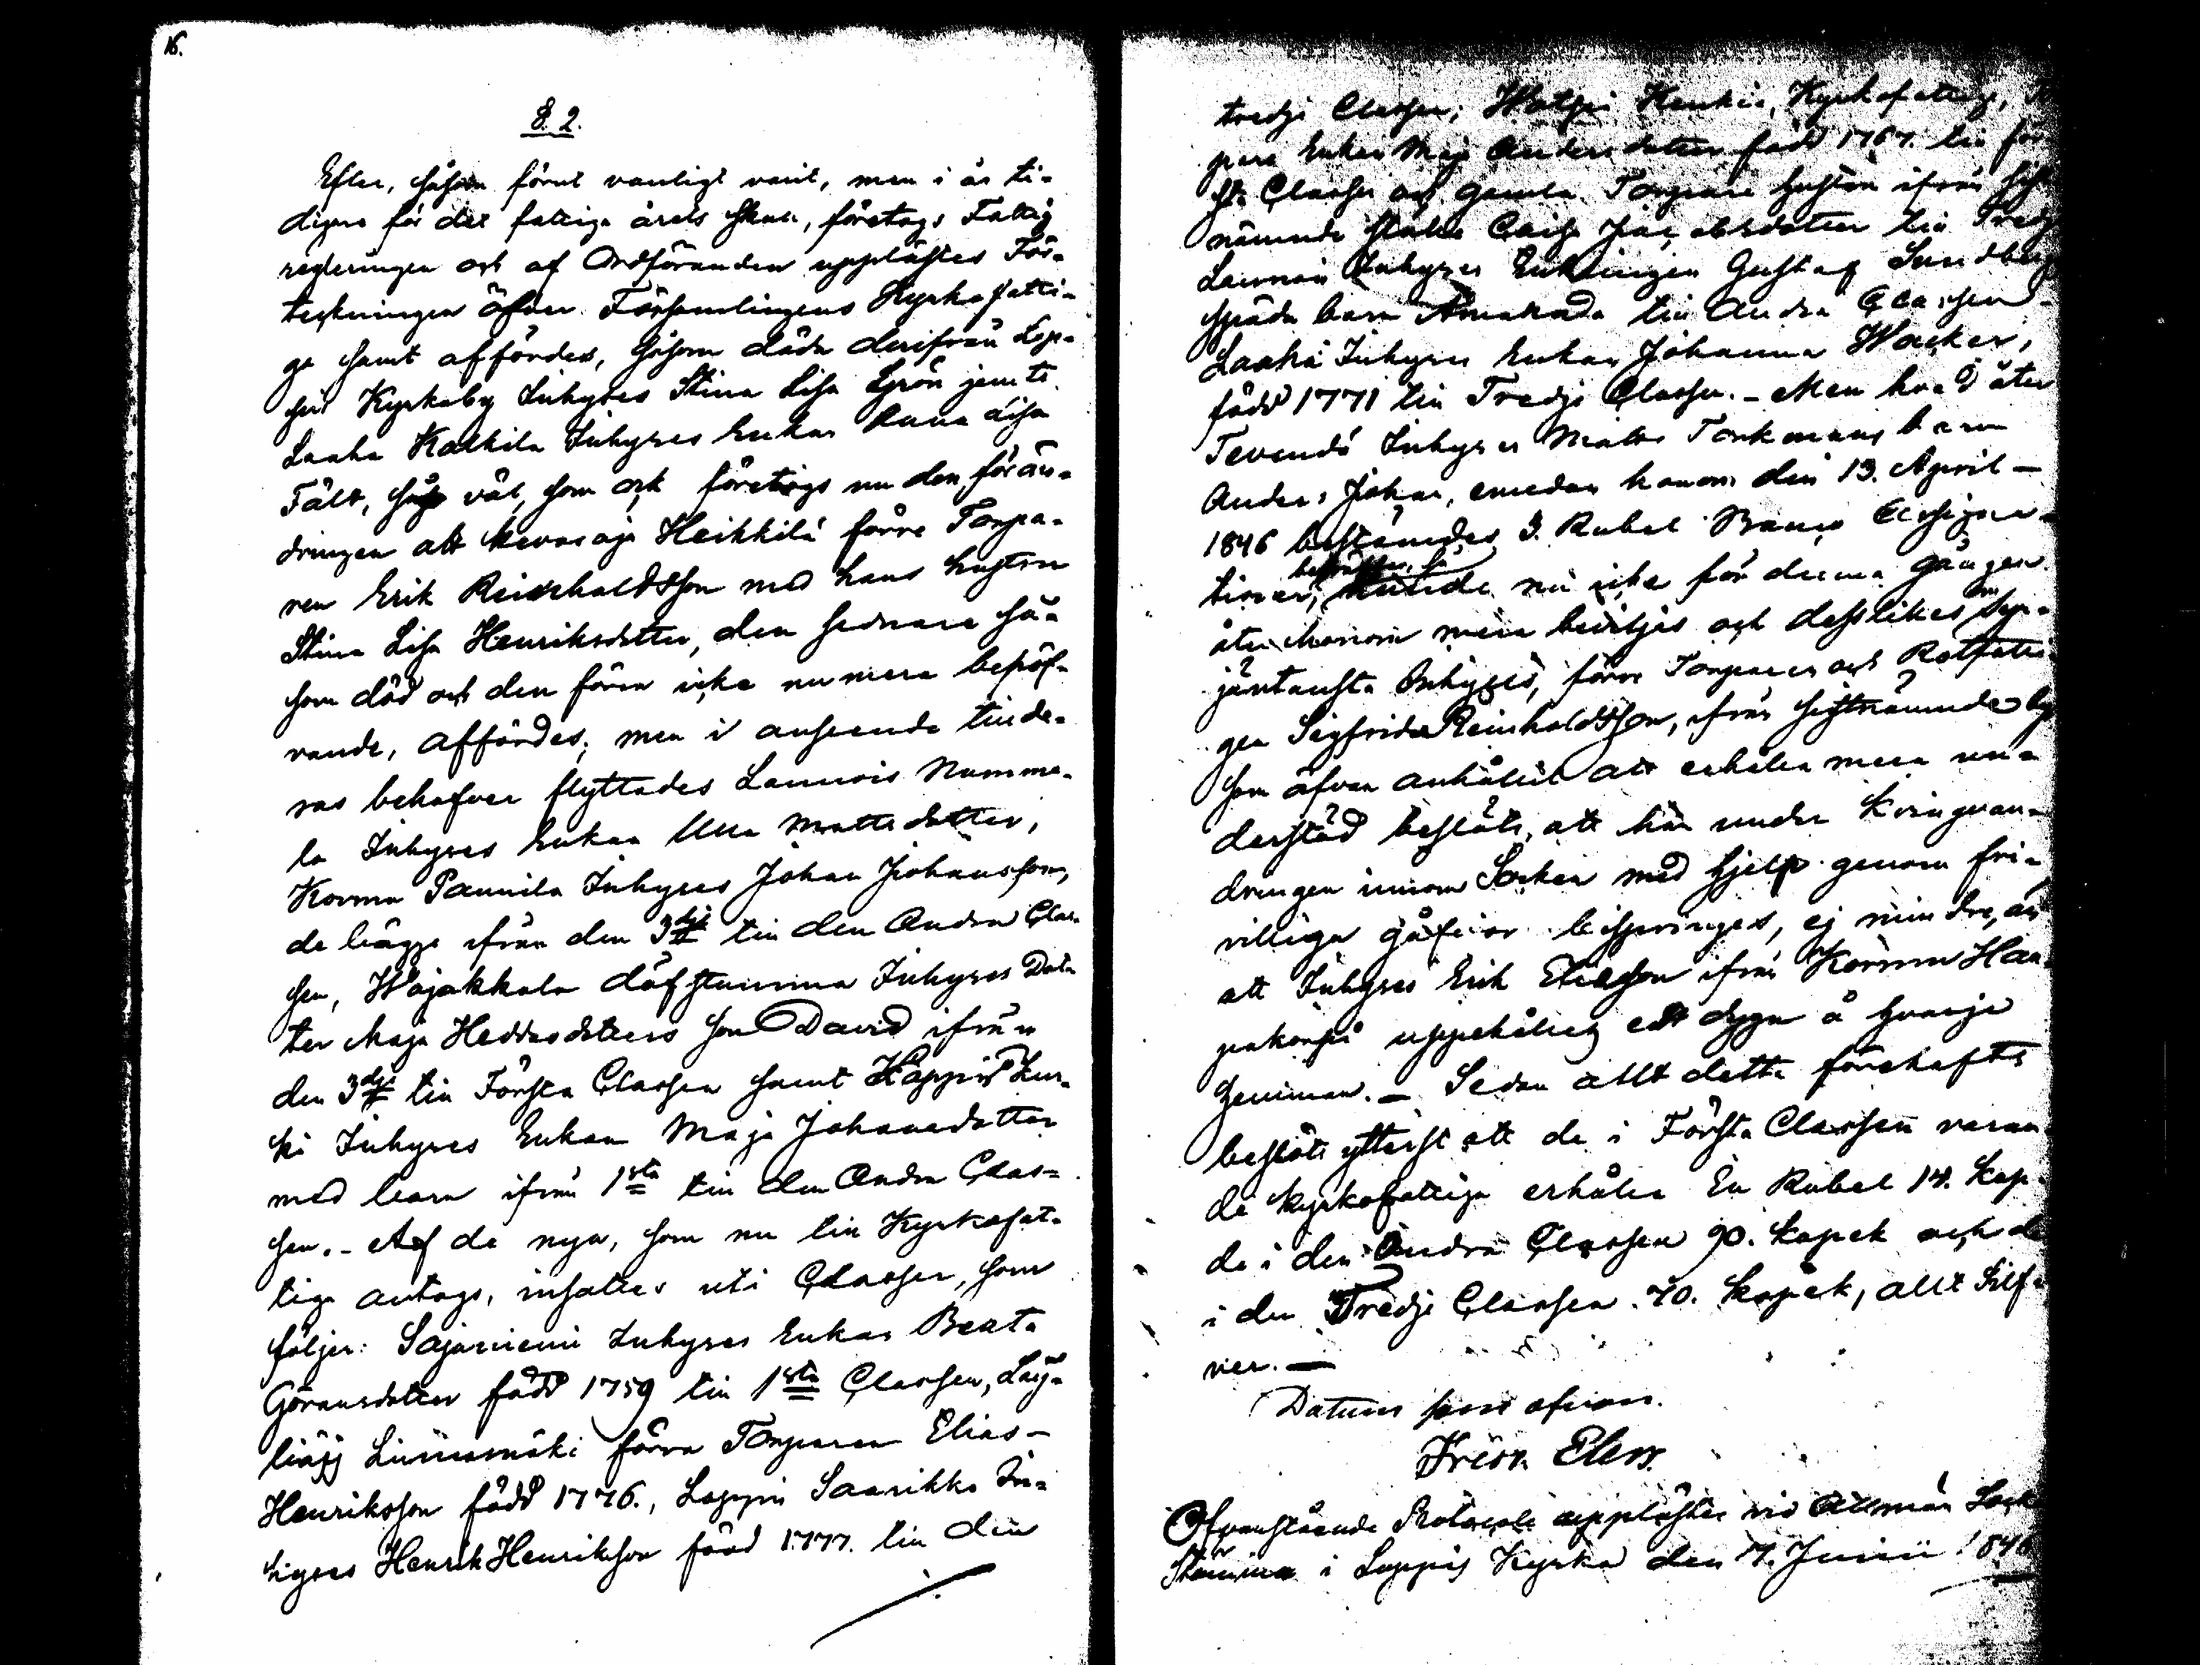 16.
§. 2.
Efter, såsom förut vanligt varit, men i år ti-
digare för det fattiga årets skull, företogs Fattig
regleringen och af Ordföranden upplästes För-
teckningen öfver Församlingens Kyrkofatti-
ge samt affördes, såsom döde derifrån Lop-
pis Kyrkoby Inhyses Stina Lisa Grön jemte
Laaka Kalkila Inhyses Enkan Anna Lisa
Fält, så väl, som ock företogs nu den förän-
dringen att Kevosoja Heikkilä förre Torpa-
ren Erik Reinholdsson med hans hustru
Stina Lisa Henriksdotter, den sednare så-
som död och den förra icke numera behöf-
vande, affördes; men i anseende till de-
ras behofver flyttades Launois Numme-
la Inhyses Enkan Ulla Mattsdotter,
Korma Pannila Inhyses Johan Johansson,
de bägge ifrån den 3dje till den Andra Clas-
sen, Wojakkala döfstumma Inhyses Dot-
ter Maja Heddasdotters son David ifrån
den 3dje till Första Classen samt Hoppis
ki Inhyses Enkan Maja Johansdotter
med barn ifrån 1sta till den Andra Clas-
sen. - Af de nya, som nu till Kyrkofat-
tige antogs, insattes uti Classer, som
följer: Sajaniemi Inhyses Enkan Beata
Göransdotter född 1759 till 1sta Classen, Läy-
liäjj Liinasmäki förra Torparen Elias
Henriksson född 1776., Loppis Saarikko In-
hyses Henrik Henriksson född 1777. till den
tredje Classen; Kyrkofattig,
Enkan Maja Andersdotter född 1767. till för-
sta Classen och gamla Torpare hustrun ifrån sist
nämnde ställe Caisa Jacobsdotter till Tredje
Launois Inhyses Enklingen Gustaf Sundberg
späda barn Amanda till Andra Classen
Laaka Inhyses Enkan Johanna Wacker,
född 1771 till Tredje Classen. - Men hvad åter
Tevendö Inhyses Matts Torkmans barn
Anders Johan, emedan honom den 13. April
1846 bestämdes 3. Rubel Banco Assigna-
tioner, kunde nu icke för denna gången
åter honom mera beviljas och desslikes
Inhyses, förre Torparen och Rotfatti-
gen Sigfrid Reinholdsson, ifrån sistnämnde by
som äfven anhållit att erhålla mera un-
derstöd beslöts, att han under kringvan-
dringen innom Socken med hjelp genom fri-
villiga gåfvor bispringes, ej mindre, än
att Inhyses Erik Eliasson ifrån Korma Haa-
pakorpi uppehålles ett dygn å hvarje
hemman. - Sedan allt detta förehafts
beslöts ytterst att de i Första Classen varan-
de Kyrkofattiga erhålla En Rubel 14. Kop.
de i den Andra Classen 90. Kopek och de
i den Tredje Classen 70. Kopek, allt Silf-
ver. -
Datum som ofvan.
Ofvanstående Protocoll upplästes vid Allmän Sock
Stämma i Loppis Kyrka den 7. Junii 1846